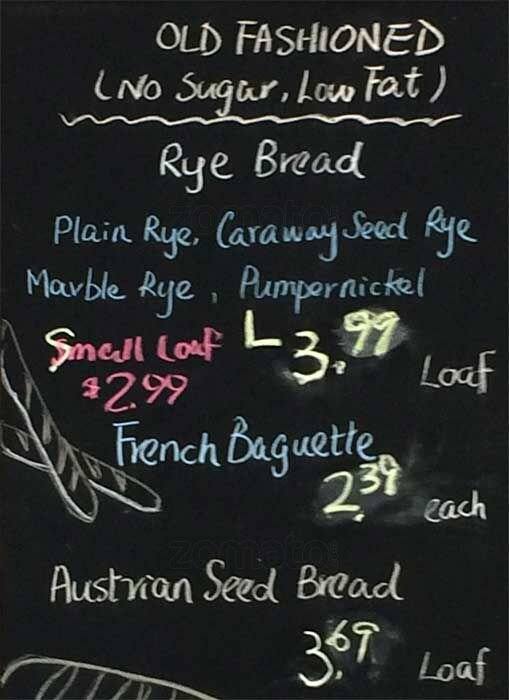 OLD FASHIONED
(No Sugar, Low Fat)
Rye Bread
Plain Rye, Caraway Seed Rye
Marble Rye, Pumpernickel
Small Loaf L 3.99 Loaf
$2.99
French Baguette
2.39 each
zomato
Austrian Seed Bread
3.69 Loaf